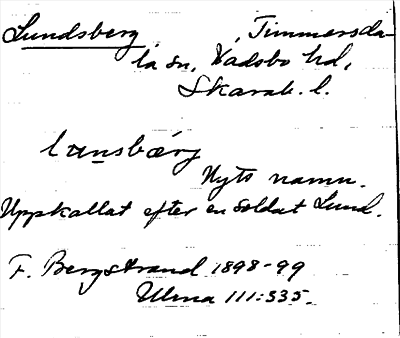 Lundsberg, Timmersda-
la sn, Vadsbo hd,
Skarab. l.
lunsbærj
Nytt namn.
Uppkallat efter en soldat Lund.
F. Bergstrand 1898-99
Ulma 111:535.